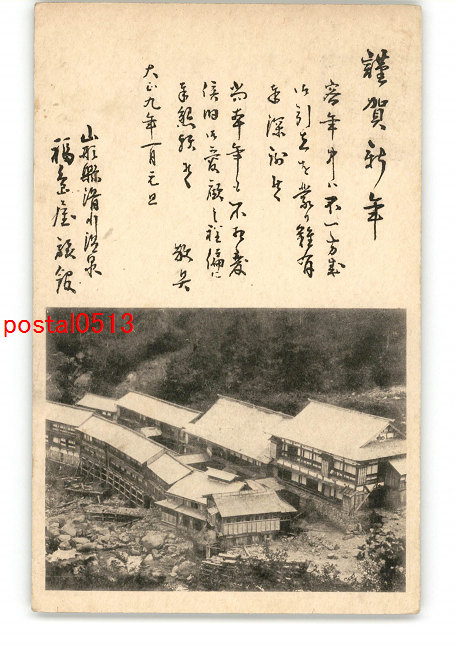 謹賀新年
客年中ハ不一方御
御引立を蒙り難有
奉深謝候
尚本年も不相変
倍旧御愛顧之程偏に
奉懇願候
敬具
大正九年一月元旦
山形縣滑川温泉
福島屋旅館
postal0513